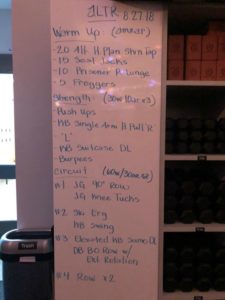 1LTR 8·27·18
Warm Up: (2min ea)
-20 Alt H Plan Shin Tap
-15 Seal Jacks
-10 Prisoner R. Lunge
-5 Froggers
Strength: (30w 10w x3)
-Push Ups
-KB Single Arm H. Pull R
"L"
-KB Suitcase DL
-Burpees
Circuit (60w/30w x2)
#1 JG 90° Row
JG Knee Tucks
#2 Ski Erg
KB Swing
#3 Elevated KB Sumo DL
DB BO Row w/
Ext Rotation
#4 Row x2
Trash